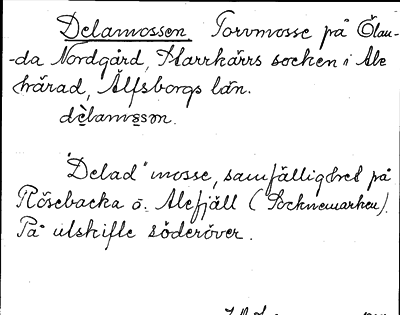 Delamossen. Torvmosse på Ölan-
-da Nordgård, Starrkärrs socken i Ale
härad, Älfsborgs län.
dèlamɷsən.
"Delad" mosse, samfällighet på
Rösebacka o. Alefjäll (Socknemarken).
På utskifte söderöver.